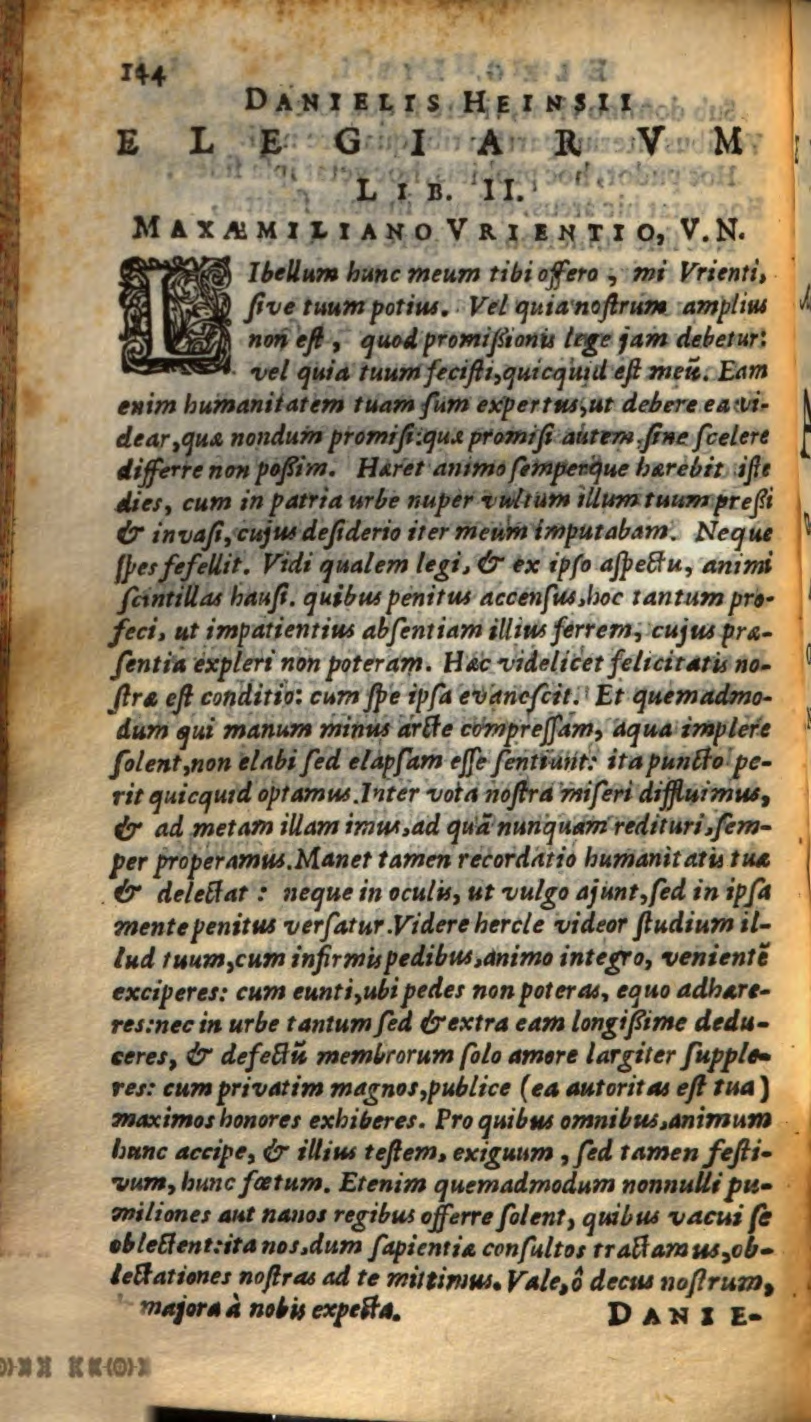 144
DANIELIS HEINSII
ELEGIARVM
LIB. II.
MAXÆMILIANO VRIENTIO, V.N.
LIbellum hunc meum tibi offero, mi Vrienti,
ſive tuum potius. Vel quia noſtrum amplius
non eſt, quod promißionis lege jam debetur:
vel quia tuum feciſti, quicquid eſt meũ. Eam
enim humanitatem tuam ſum expertus, ut debere ea vi-
dear, quæ nondum promiſi: quæ promiſi autem, ſine ſcelere
differre non poßim. Hæret animo ſemperque hærebit iſte
dies, cum in patria urbe nuper vultum illum tuum preßi
& invaſi, cujus deſiderio iter meum imputabam. Neque
ſpes fefellit. Vidi qualem legi, & ex ipſo aſpectu, animi
ſcintillas hauſi. quibus penitus accenſus, hoc tantum pro-
feci, ut impatientius abſentiam illius ferrem, cujus præ-
ſentia expleri non poteram. Hæc videlicet felicitatis no-
ſtræ eſt conditio: cum ſpe ipſa evaneſcit. Et quemadmo-
dum qui manum minus arcte compreſſam, aqua implere
ſolent, non elabi ſed elapſam eſſe ſentiunt: ita puncto pe-
rit quicquid optamus. Inter vota noſtra miſeri diffluimus,
& ad metam illam imus, ad quã nunquam redituri, ſem-
per properamus. Manet tamen recordatio humanitatis tuæ
& delectat: neque in oculis, ut vulgo ajunt, ſed in ipſa
mente penitus verſatur. Videre hercle videor ſtudium il-
lud tuum, cum infirmis pedibus, animo integro, venientẽ
exciperes: cum eunti, ubi pedes non poteras, equo adhære-
res: nec in urbe tantum ſed & extra eam longißime dedu-
ceres, & defectũ membrorum ſolo amore largiter ſupple-
res: cum privatim magnos, publice (ea autoritas eſt tua)
maximos honores exhiberes. Pro quibus omnibus, animum
hunc accipe, & illius teſtem, exiguum, ſed tamen feſti-
vum, hunc fœtum. Etenim quemadmodum nonnulli pu-
miliones aut nanos regibus offerre ſolent, quibus vacui ſe
oblectent: ita nos, dum ſapientiæ conſultos tractamus, ob-
lectationes noſtras ad te mittimus. Vale, ô decus noſtrum,
majora à nobis expecta.
DANIE-